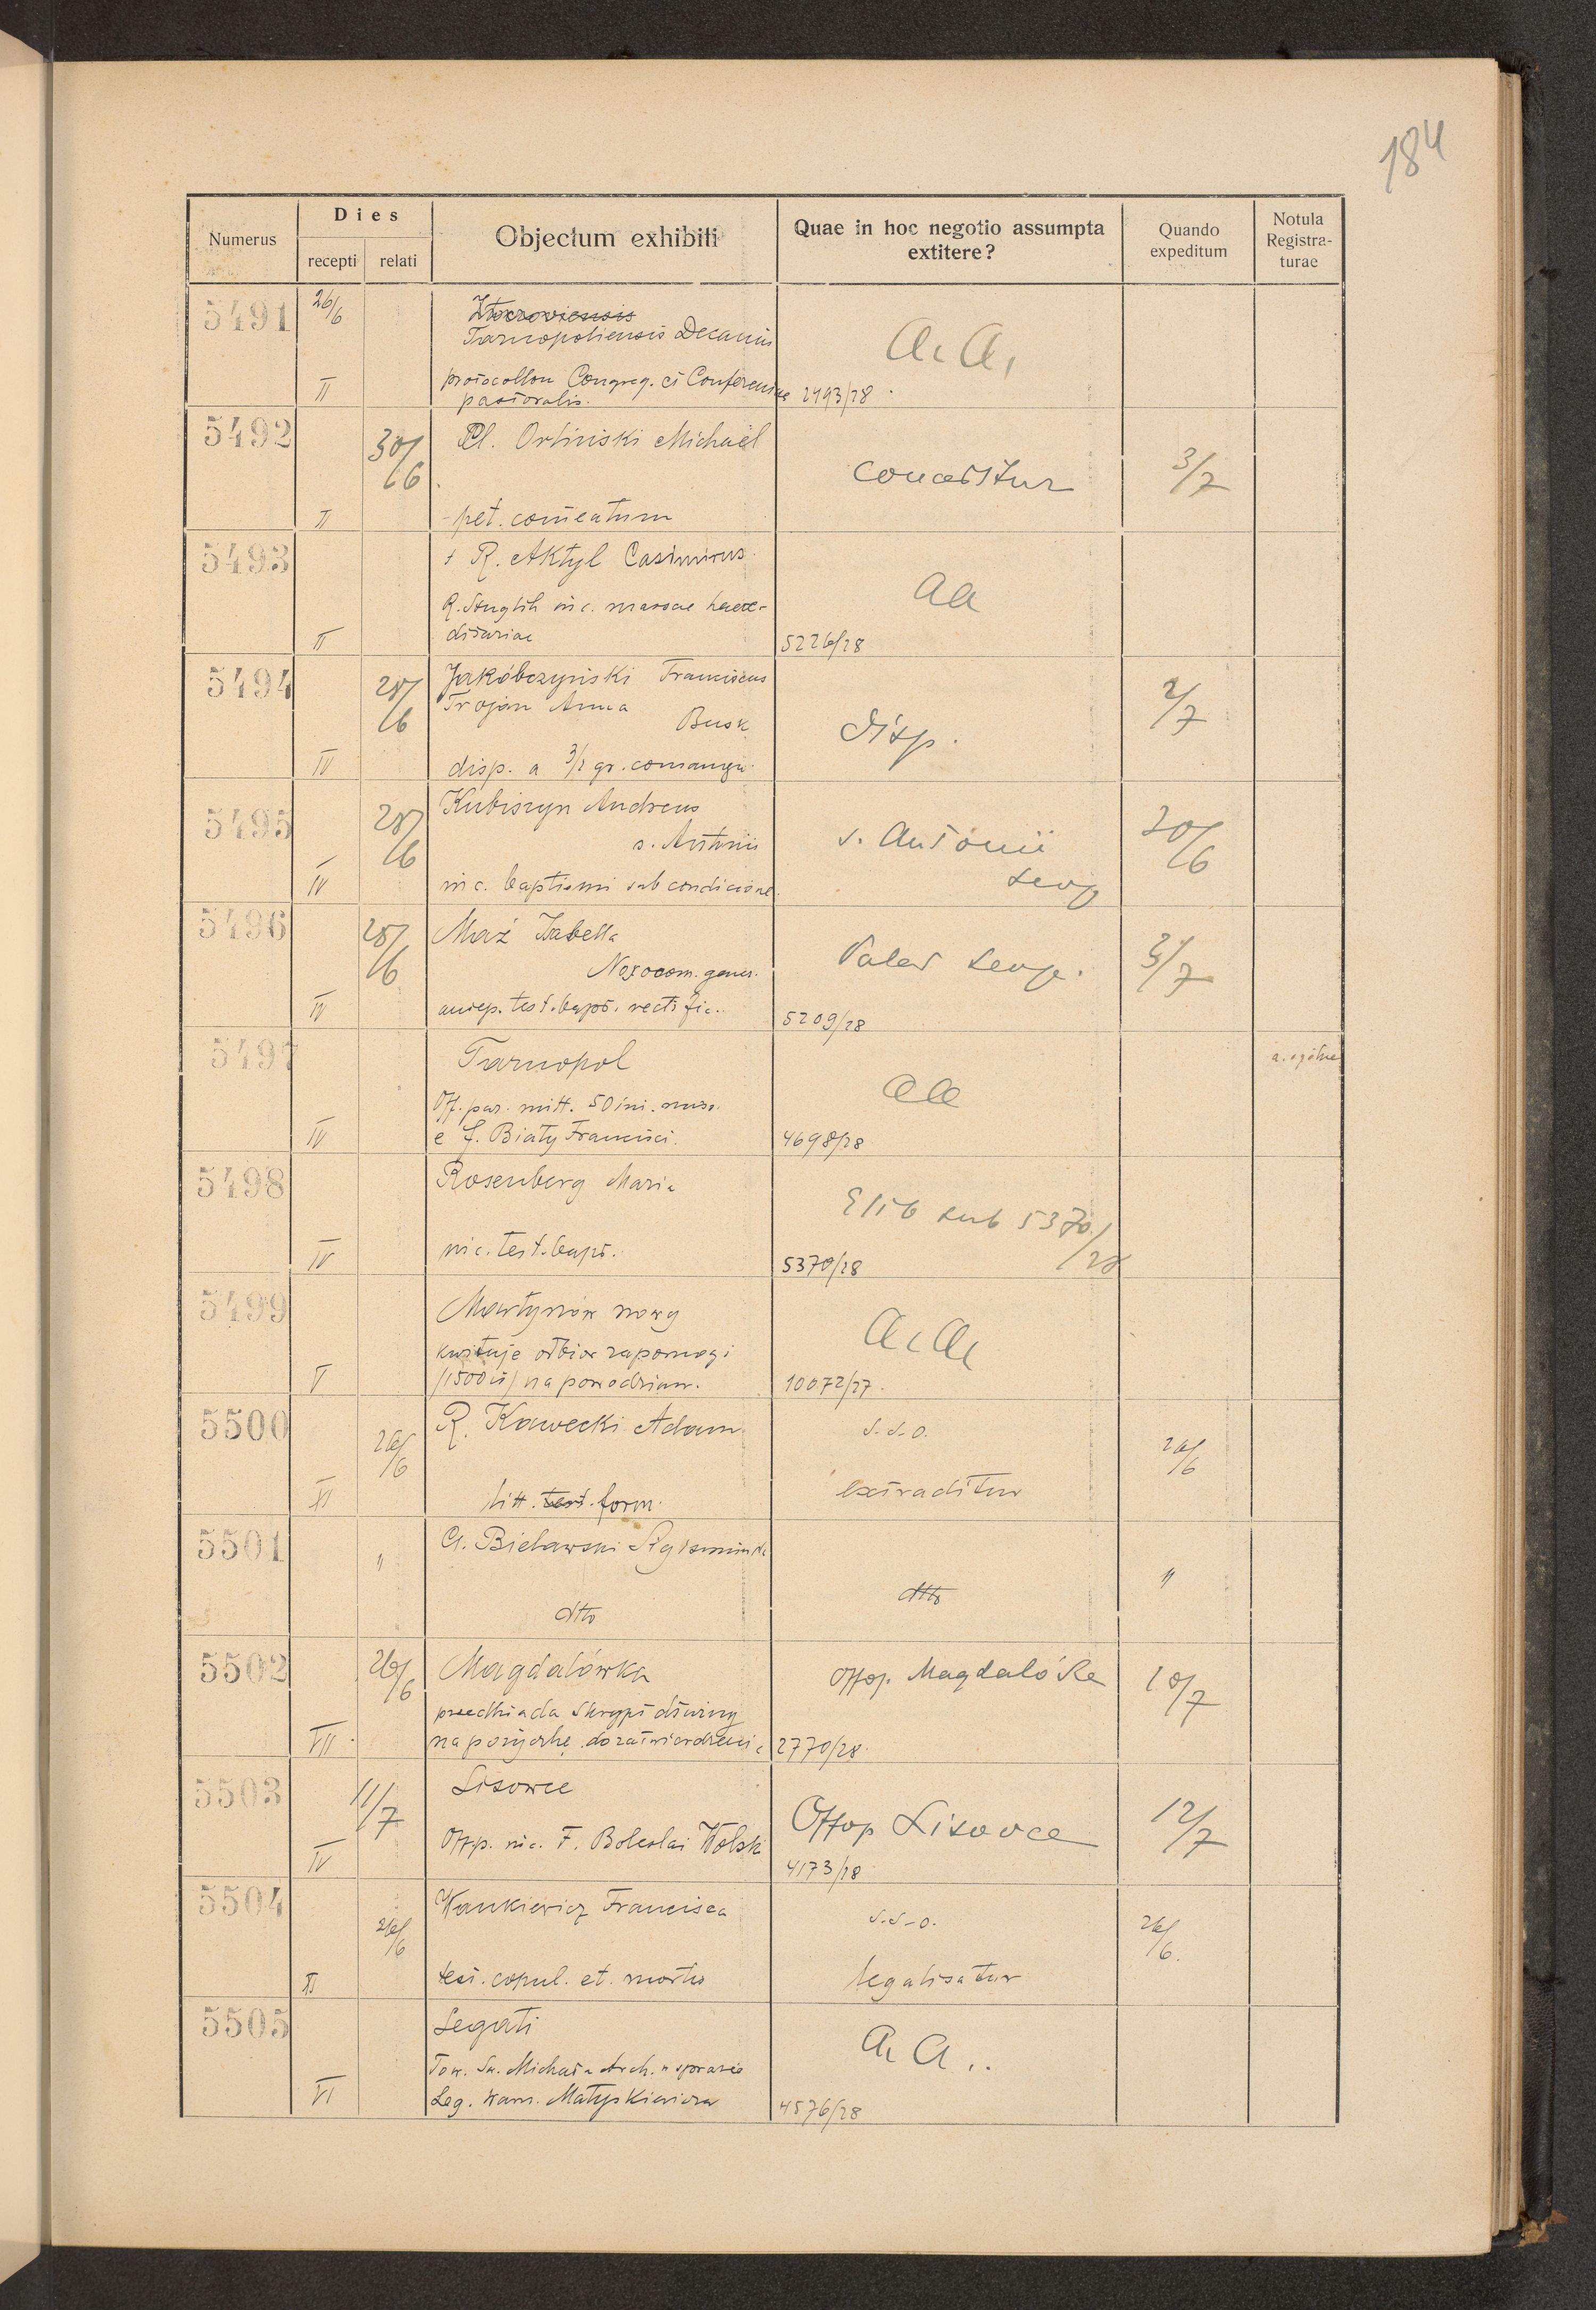 184
Numerus
Dies
recepti
relati
Objectum exhibiti
Quae in hoc negotio assumpta
extitere?
Quando
expeditum
Notula
Registra-
turae
5491
26/6
II
Tarnopoliensis Decanus
protocollon Congreg. et Conferentiae
pastoralis.
a. a.
2493/28
5492
II
30/6
Cl. Orliński Michaël
pet. comeatum
conceditur
3/7
5493
II
+ R. Aktyl Casimirus
R. inc. massae haere-
ditariae
aa
5226/28
5494
IV
28/6
Jakóbczyński Franciscus
Trojan Anna
Busk
disp. a 3/2 gr. consangu.
disp.
2/7
5495
IV
28/6
Kubiszyn Andreas
s. Antonii
in c. baptismi sub condicione
s. Antonii
Leop
30/6
5496
IV
28/6
Maź Isabella
Nosocom. gener.
test. bapt. rectific.
Valet Leop.
5209/28
3/7
5497
IV
Tarnopol
Off. par. mitt. 50 int. miss.
e f. Biały Francisci
aa
4698/28
5498
IV
Rosenberg Maria
in c. test. bapt.
sub 5370/28
5370/28
5499
V
Martynów nowy
kwituje odbiór zapomogi
/1500 zł/ na powodzian.
a. a.
10072/27.
5500
XI
26/6
R. Kawecki Adam
litt. test. form.
s. s. o.
extraditur
26/6
5501
"
Cl. Bielawski Sigismundus
dtto
dtto
"
5502
VII
26/6
Magdalówka
przedkłada skrypt dłużny
na pożyczkę do zatwierdzenia
Offop. Magdalówka
2770/28.
10/7
5503
IV
11/7
Lisowce
Offp. in c. F. Boleslai Wolski
Offop Lisowce
4173/28
12/7
5504
XI
26/6
Wankiewicz Francisca
test. copul. et. mortis
s. s. o.
legalisatur
26/6.
5505
VI
Legati
Tow. Św. Michała Arch. w sprawie
Leg. Matyskiewicza
a. a..
4576/28